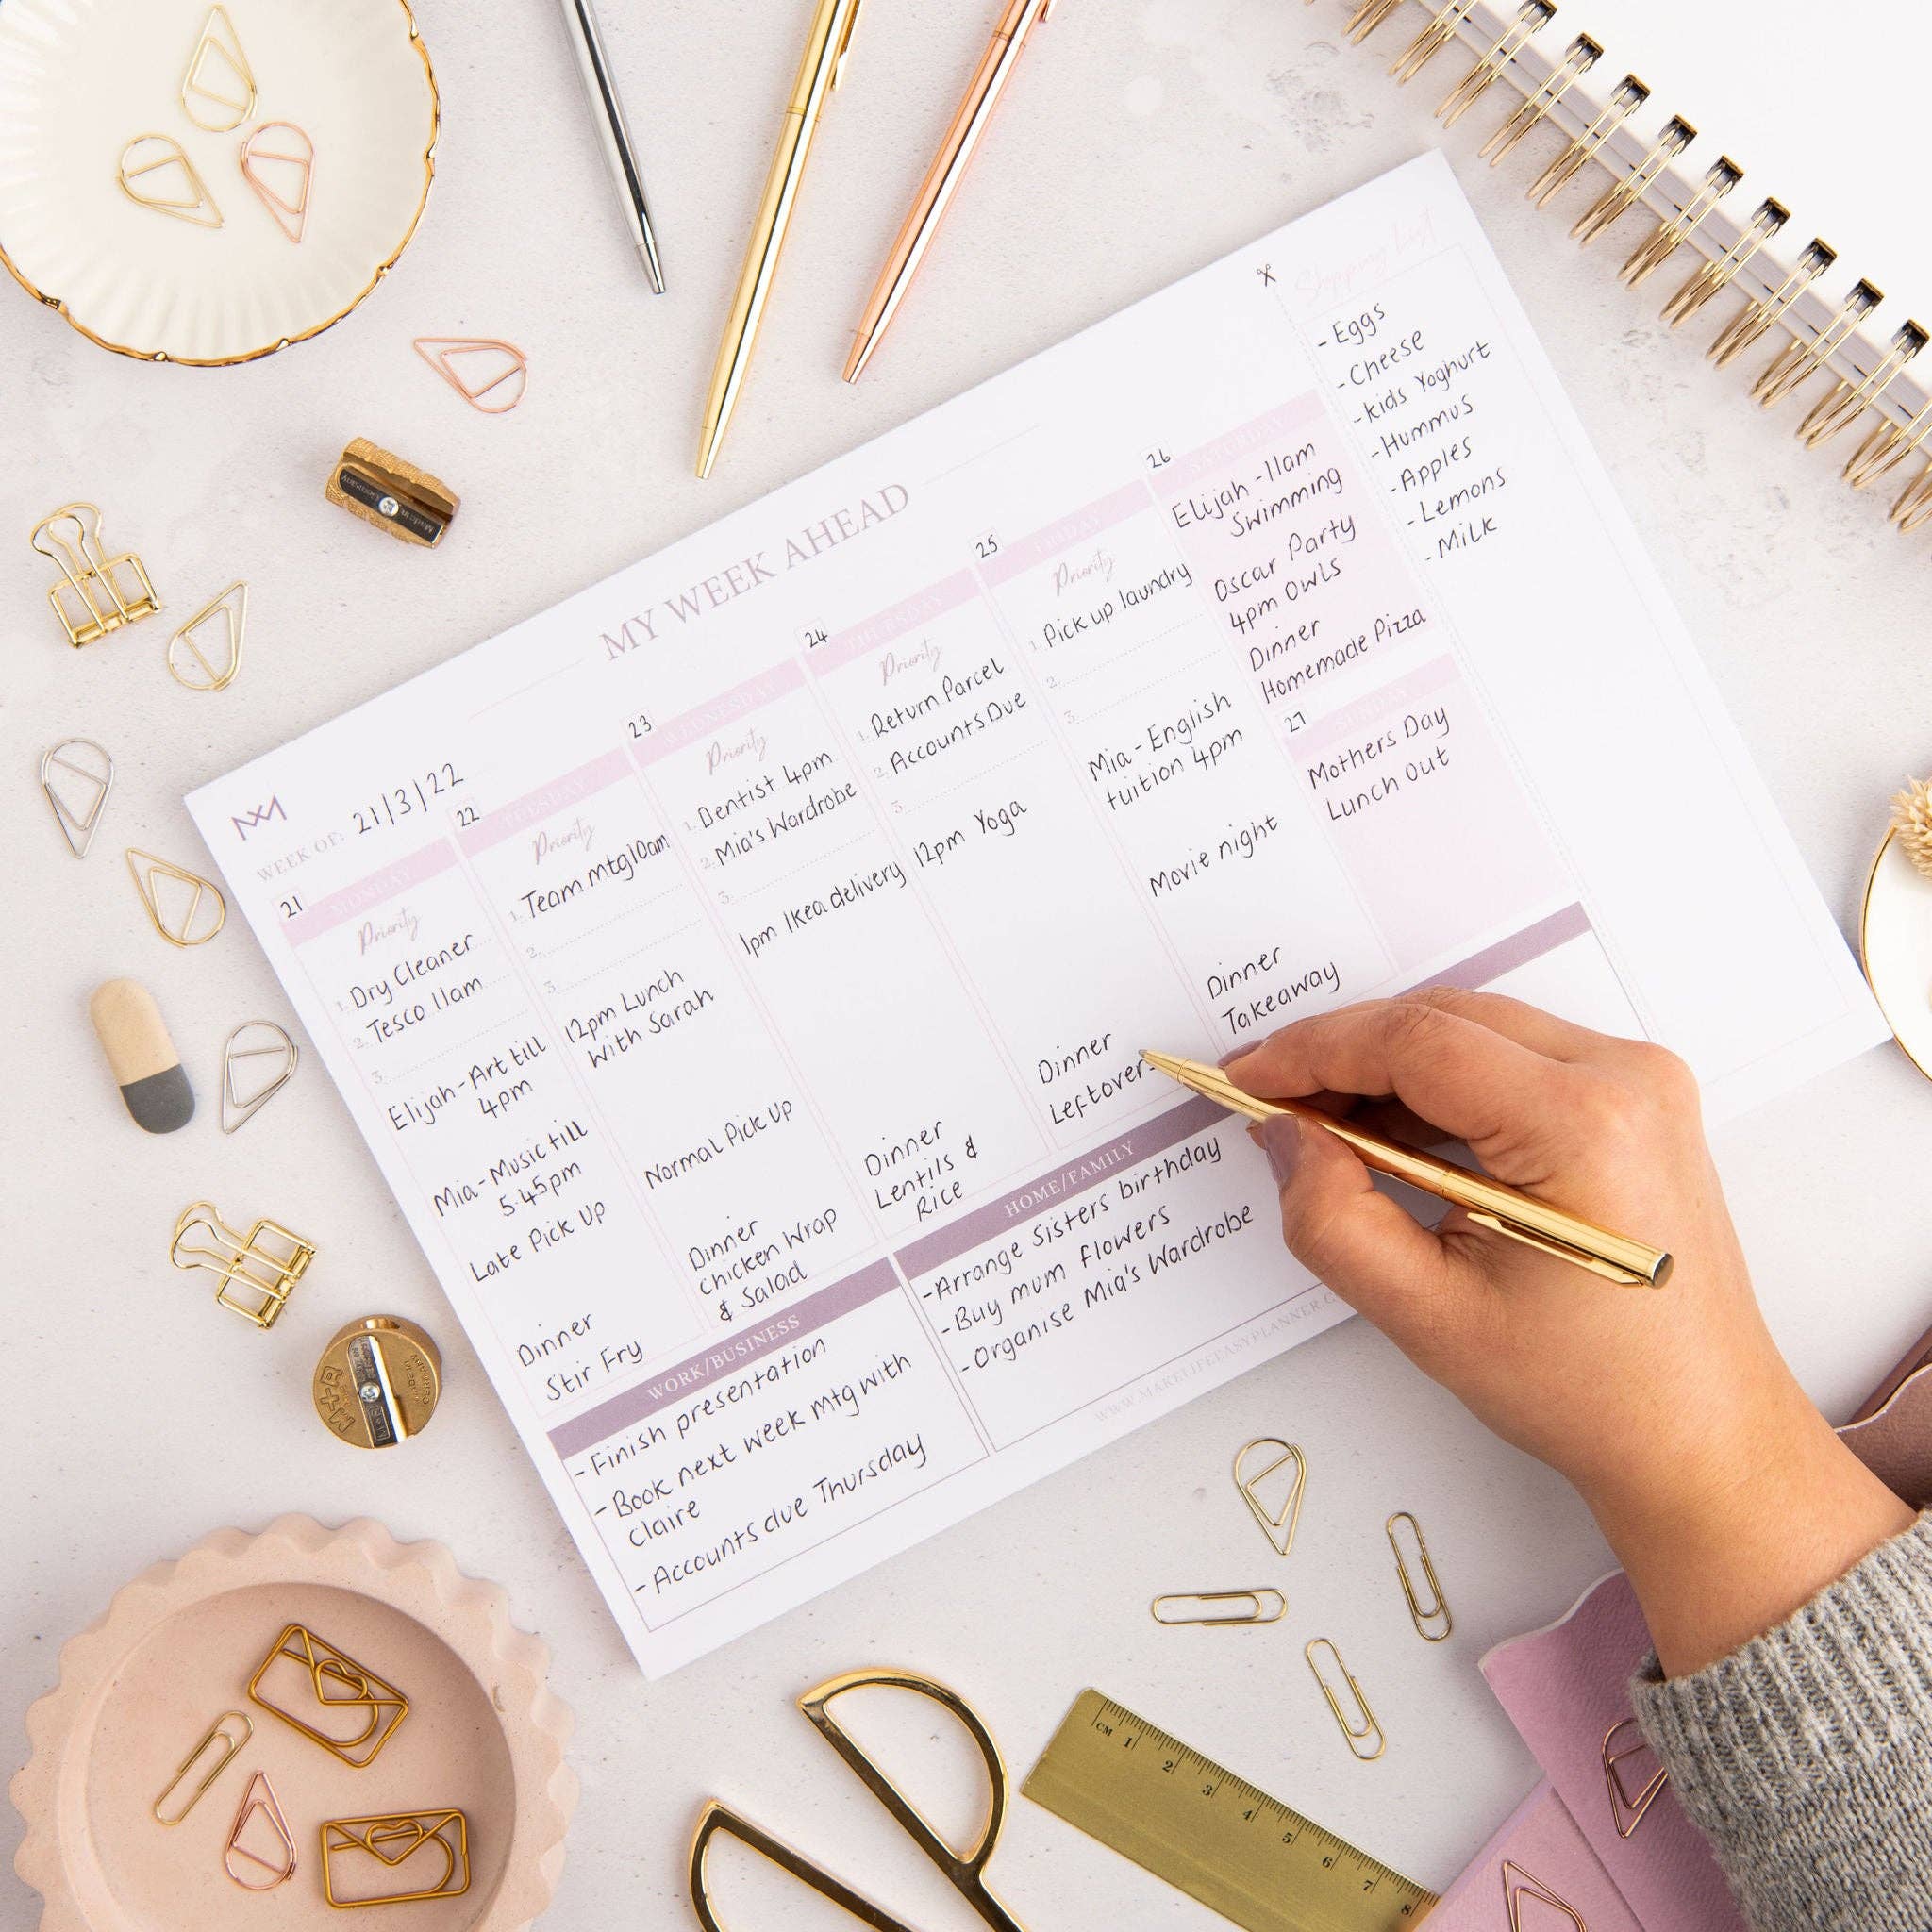 MY WEEK AHEAD
WEEK OF: 21/3/22
21
MONDAY
Priority
1. Dry Cleaner
2. Tesco 11am
3.
Elijah - Art till
4pm
Mia - Music till
5:45pm
Late Pick Up
Dinner
Stir Fry
22
TUESDAY
Priority
1. Team mtg 10am
2.
3.
12pm Lunch
With Sarah
Normal Pick Up
Dinner
chicken Wrap
& Salad
23
WEDNESDAY
Priority
1. Dentist 4pm
2. Mia's Wardrobe
3.
1pm Ikea delivery
Dinner
Lentils &
Rice
24
THURSDAY
Priority
1. Return Parcel
2. Accounts Due
3.
12pm Yoga
Dinner
Leftover
25
FRIDAY
Priority
1. Pick up laundry
2.
3.
Mia - English
tuition 4pm
Movie night
Dinner
Takeaway
26
SATURDAY
Elijah - 11am
Swimming
Oscar Party
4pm Owls
Dinner
Homemade Pizza
27
Mothers Day
Lunch Out
Shopping List
- Eggs
- Cheese
- Kids Yoghurt
- Hummus
- Apples
- Lemons
- Milk
WORK/BUSINESS
- Finish presentation
- Book next week mtg with
Claire
- Accounts due Thursday
HOME/FAMILY
- Arrange Sisters birthday
- Buy mum flowers
- Organise Mia's Wardrobe
WWW.MAKELIFEEASYPLANNER.C
CM 1 2 3 4 5 6 7 8